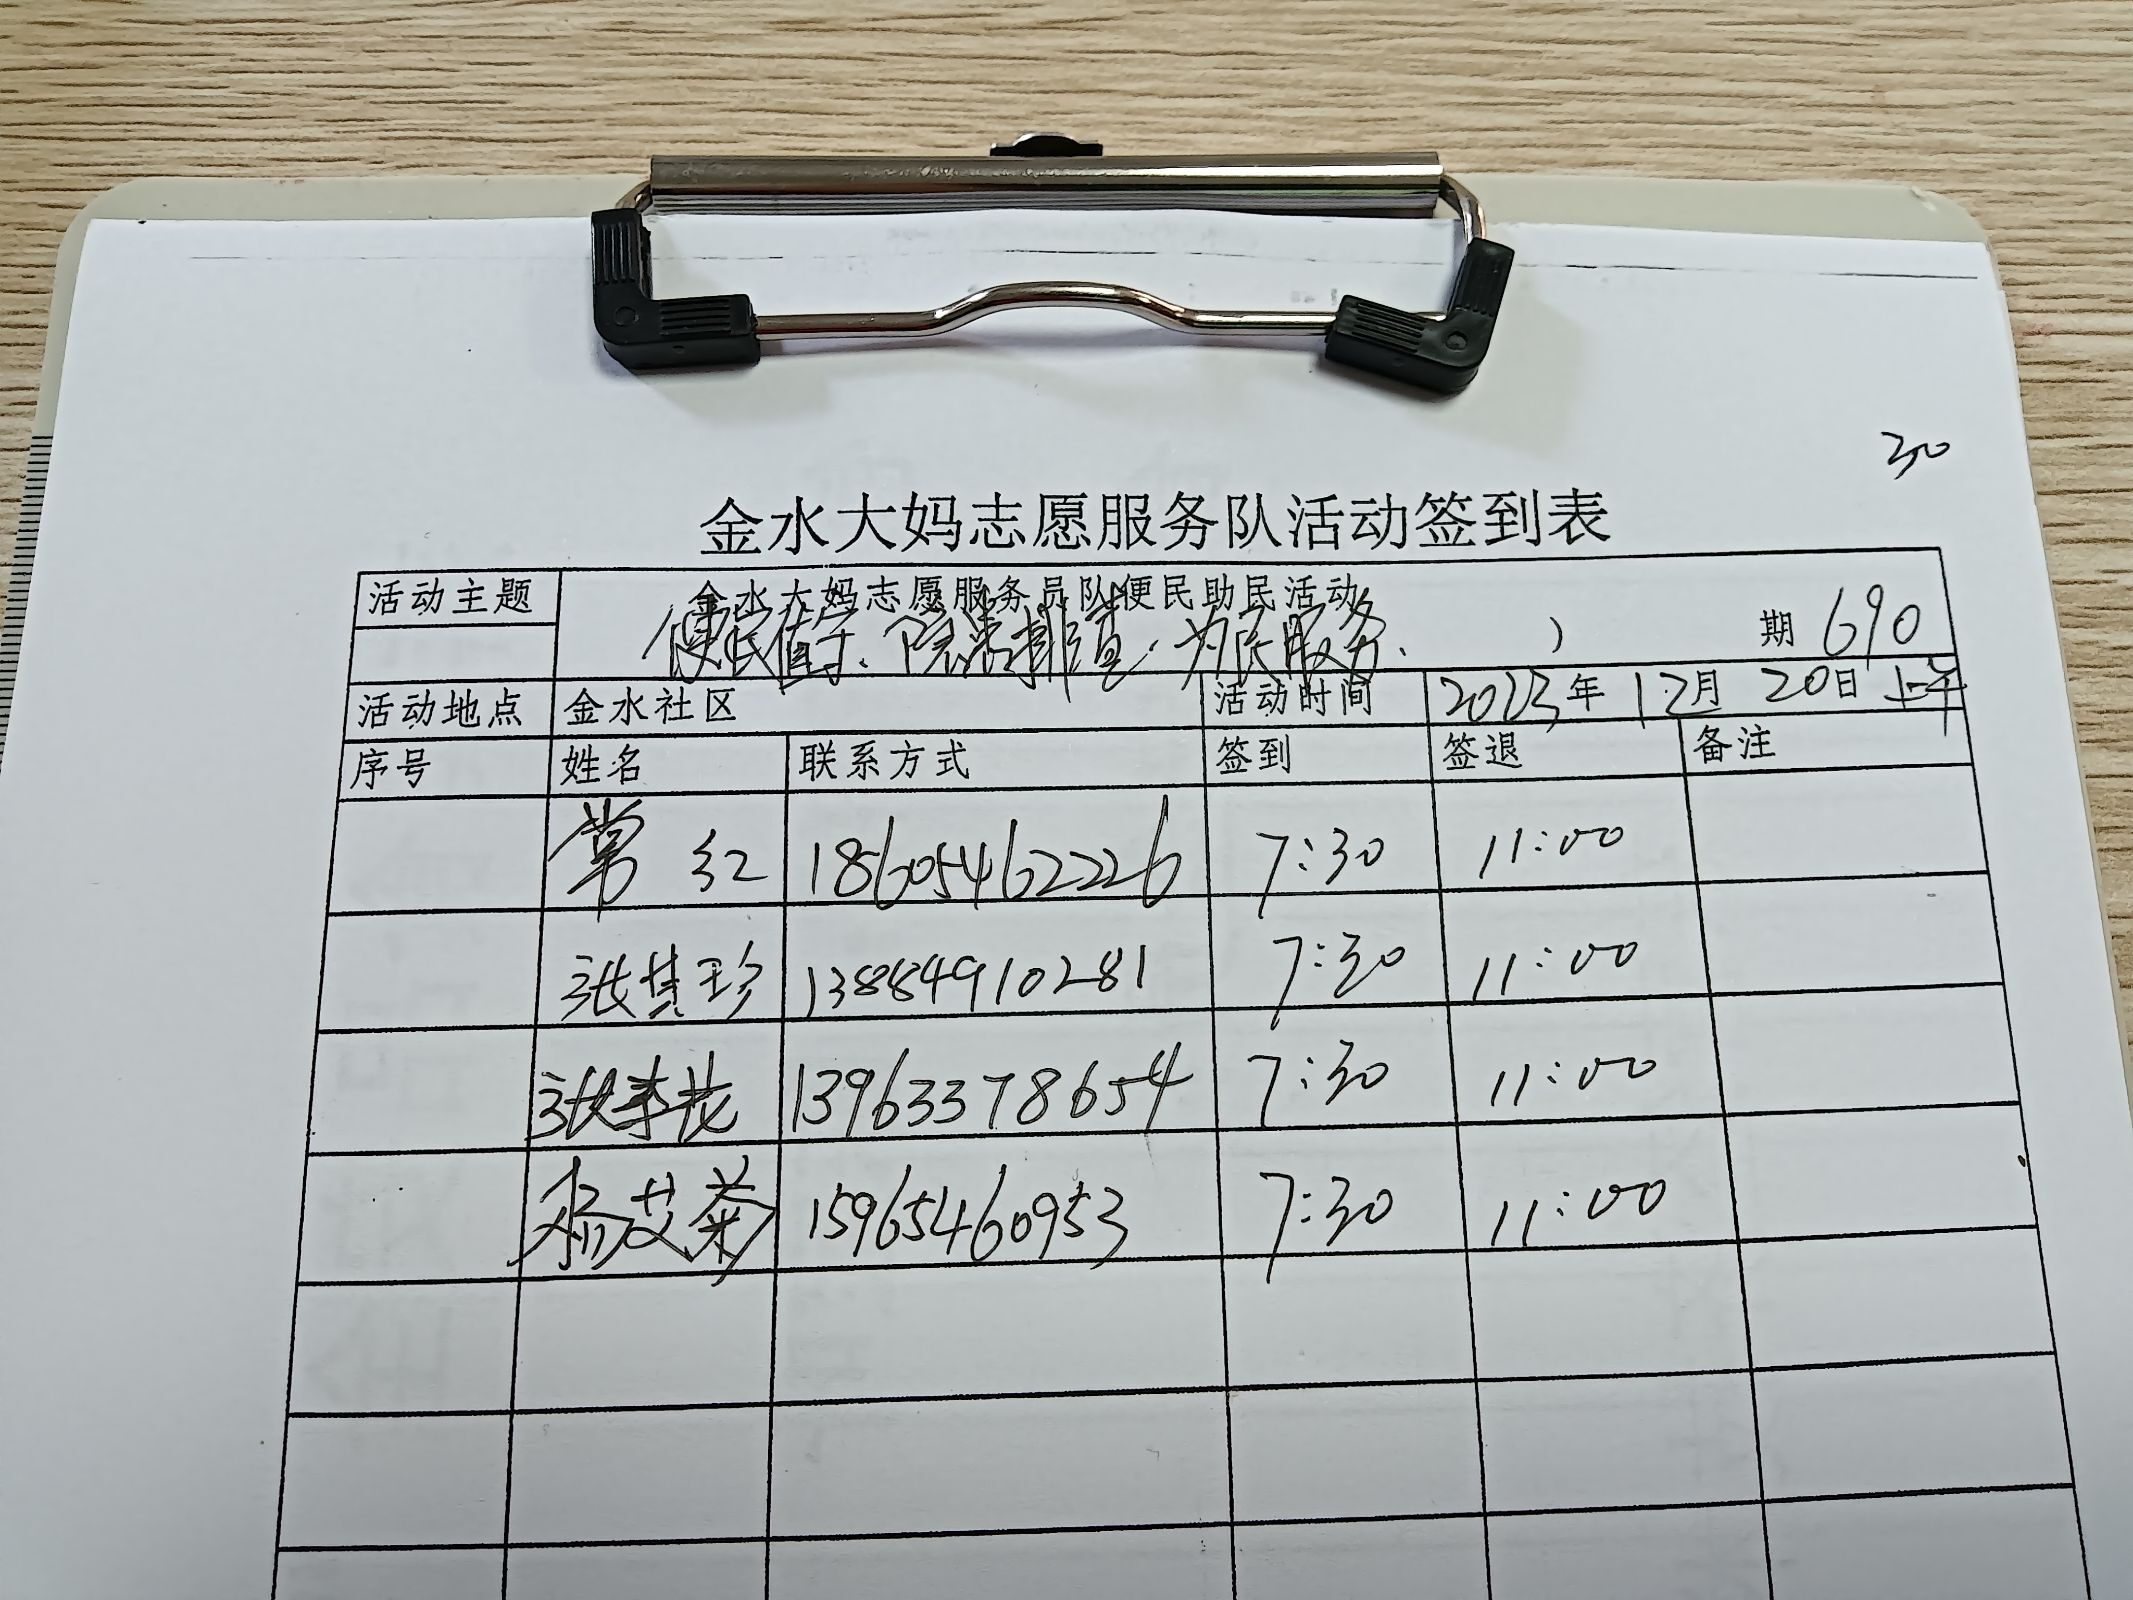 30
金水大妈志愿服务队活动签到表
活动主题 金水大妈志愿服务员队便民助民活动
便民值守、隐患排查、为民服务、 ） 期 690
活动地点 金水社区 活动时间 2023年 12月 20日 上午
序号 姓名 联系方式 签到 签退 备注
常红 18605462226 7:30 11:00
张其珍 13884910281 7:30 11:00
张 13963378654 7:30 11:00
杨艾菊 15965460953 7:30 11:00